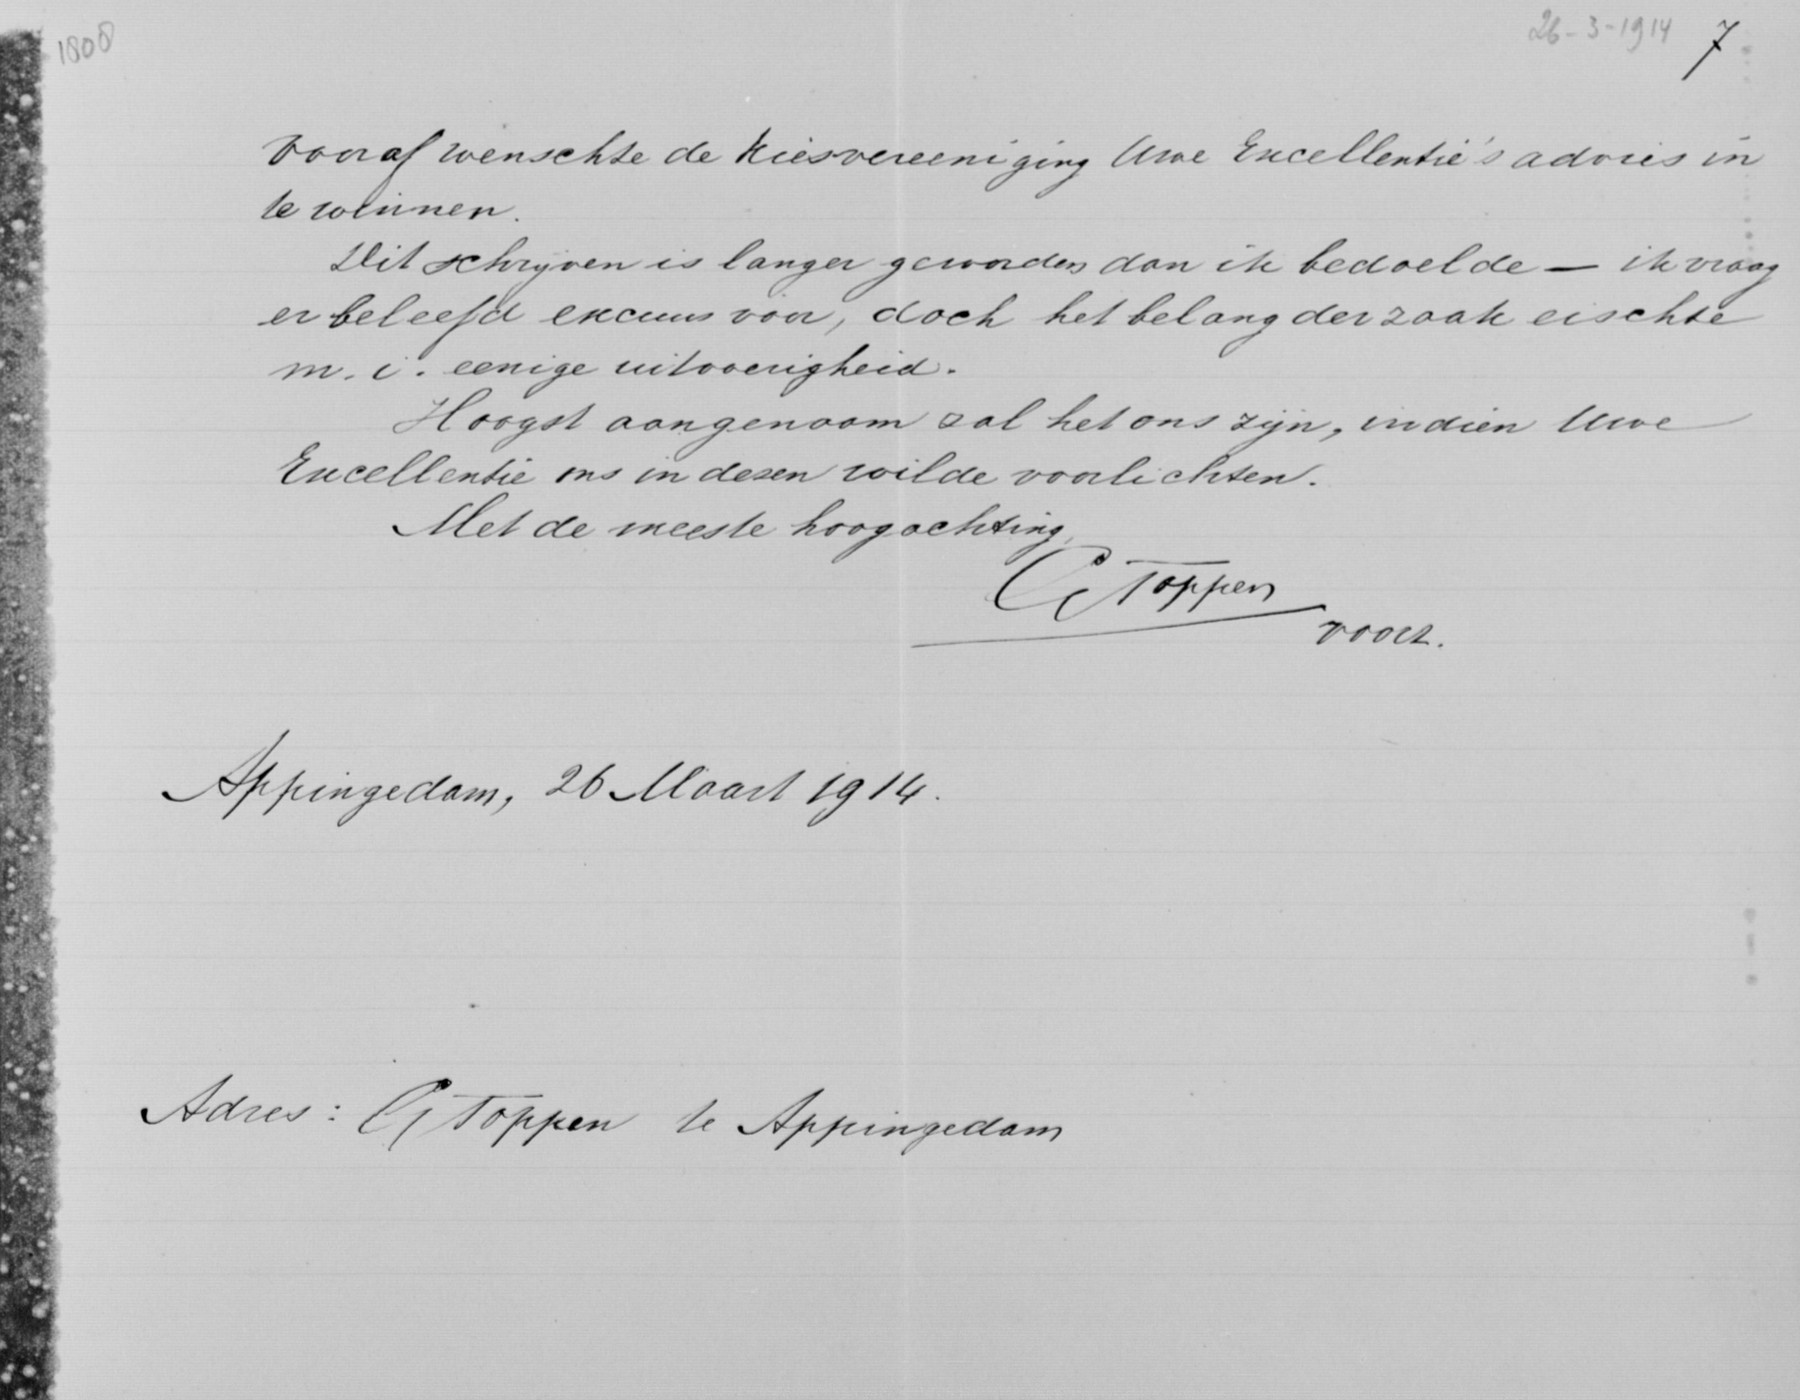 1808
26-3-1914 7
Vooraf wenschte de Kiesvereeniging Uwe Excellentie's advies in
te winnen.
Dit schrijven is langer geworden dan ik bedoelde — ik vraag
er beleefd excuus voor, doch het belang der zaak eischte
m. i. eenige uitvoerigheid.
Hoogst aangenaam zal het ons zijn, indien Uwe
Excellentie ons in dezen wilde voorlichten.
Met de meeste hoogachting,
G Toppen
voorz.
Appingedam, 26 Maart 1914.
Adres: G Toppen te Appingedam